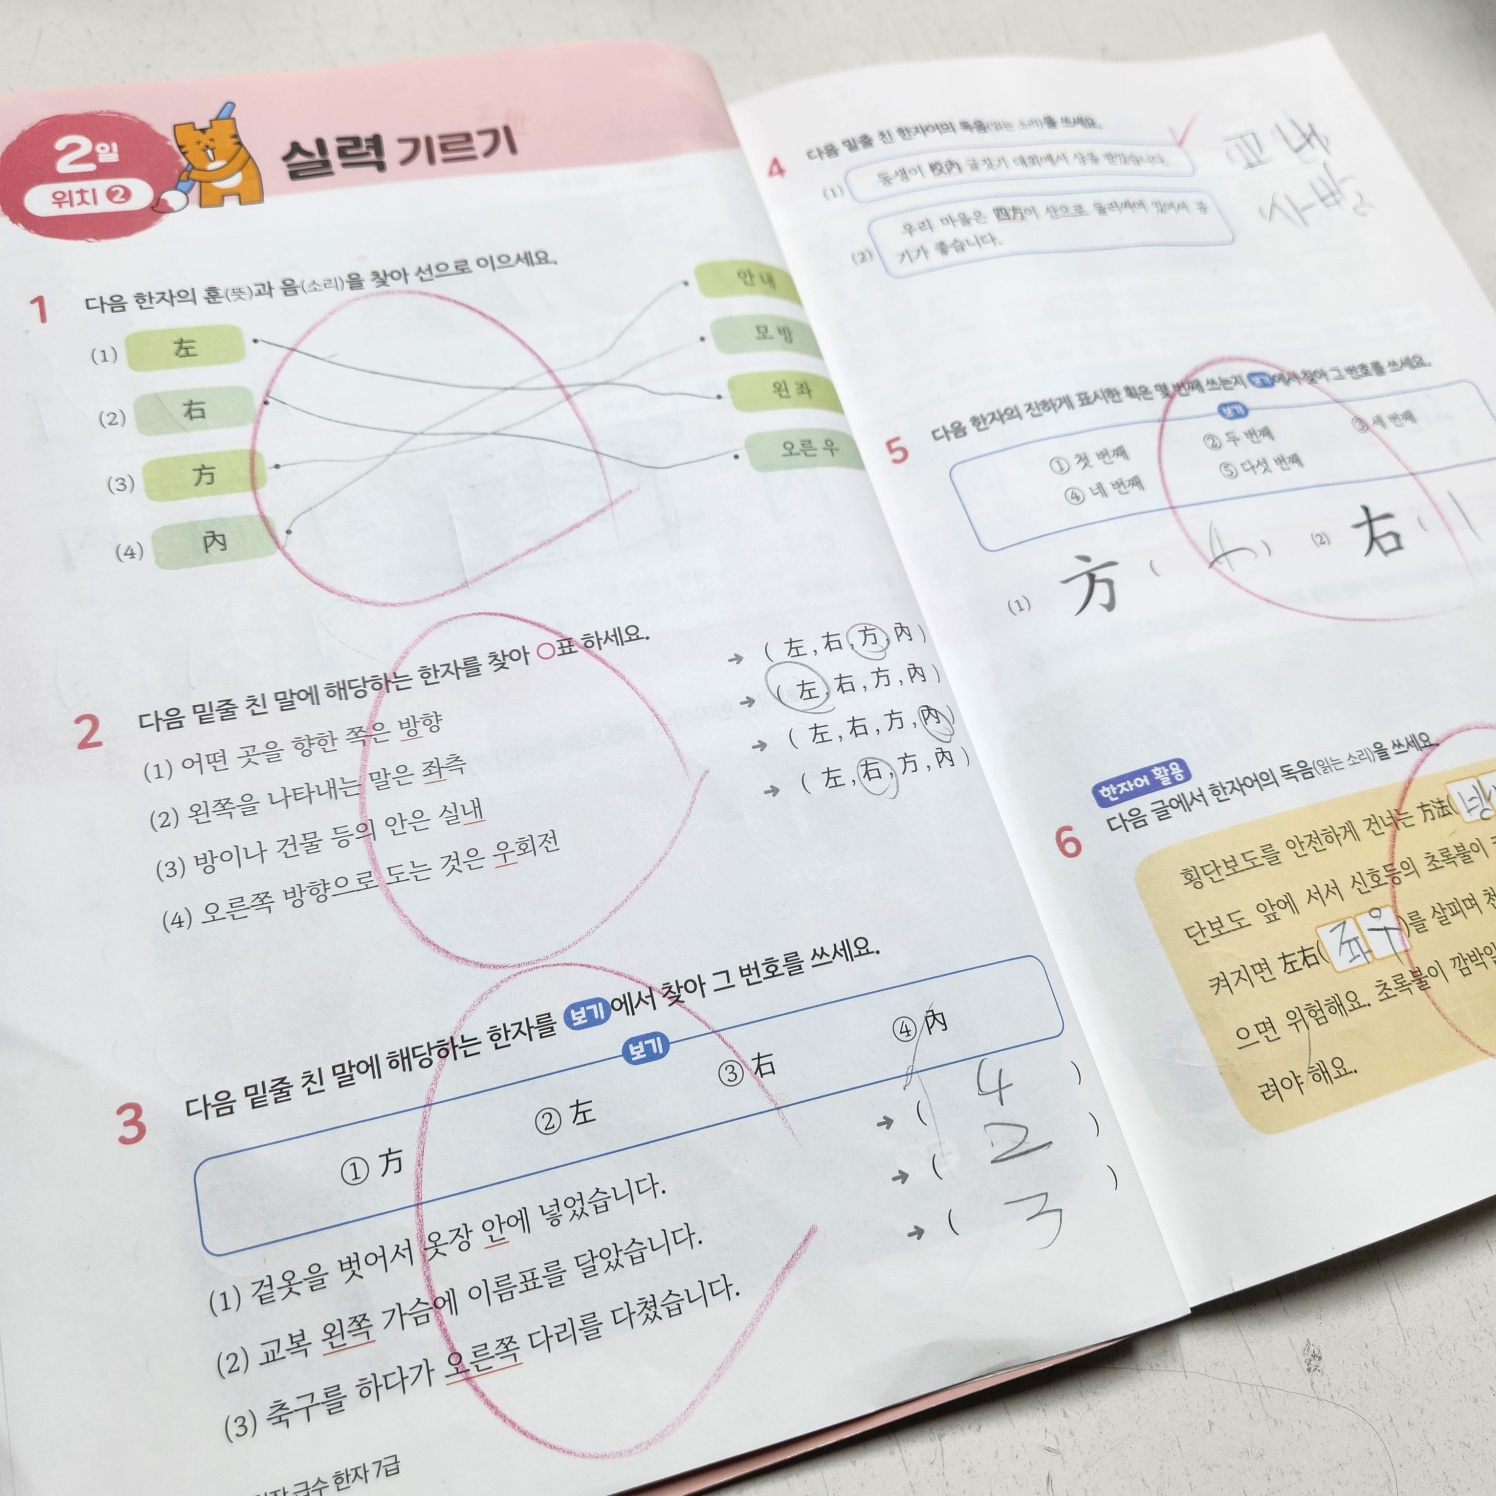 2일
위치 2
실력 기르기
1 다음 한자의 훈(뜻)과 음(소리)을 찾아 선으로 이으세요.
(1) 左
(2) 右
(3) 方
(4) 內
안 내
모 방
왼 좌
오른 우
2 다음 밑줄 친 말에 해당하는 한자를 찾아 ○표 하세요.
(1) 어떤 곳을 향한 쪽은 방향 → ( 左, 右, 方, 內 )
(2) 왼쪽을 나타내는 말은 좌측 → ( 左, 右, 方, 內 )
(3) 방이나 건물 등의 안은 실내 → ( 左, 右, 方, 內 )
(4) 오른쪽 방향으로 도는 것은 우회전 → ( 左, 右, 方, 內 )
3 다음 밑줄 친 말에 해당하는 한자를 보기에서 찾아 그 번호를 쓰세요.
보기
① 方 ② 左 ③ 右 ④ 內
(1) 겉옷을 벗어서 옷장 안에 넣었습니다. → ( 4 )
(2) 교복 왼쪽 가슴에 이름표를 달았습니다. → ( 2 )
(3) 축구를 하다가 오른쪽 다리를 다쳤습니다. → ( 3 )
급수 한자 7급
4 다음 밑줄 친 한자어의 독음(읽는 소리)을 쓰세요.
(1) 동생이 校內 글짓기 대회에서 상을 받았습니다. 교내
(2) 우리 마을은 四方이 산으로 둘러싸여 있어서 공
기가 좋습니다. 사방
5 다음 한자의 진하게 표시한 획은 몇 번째 쓰는지 보기에서 찾아 그 번호를 쓰세요.
보기
① 첫 번째 ② 두 번째 ③ 세 번째
④ 네 번째 ⑤ 다섯 번째
(1) 方 ( 4 ) (2) 右 ( 1
한자어 활용
6 다음 글에서 한자어의 독음(읽는 소리)을 쓰세요.
횡단보도를 안전하게 건너는 方法(
단보도 앞에 서서 신호등의 초록불이
켜지면 左右(좌우)를 살피며
으면 위험해요. 초록불이 깜박
려야 해요.